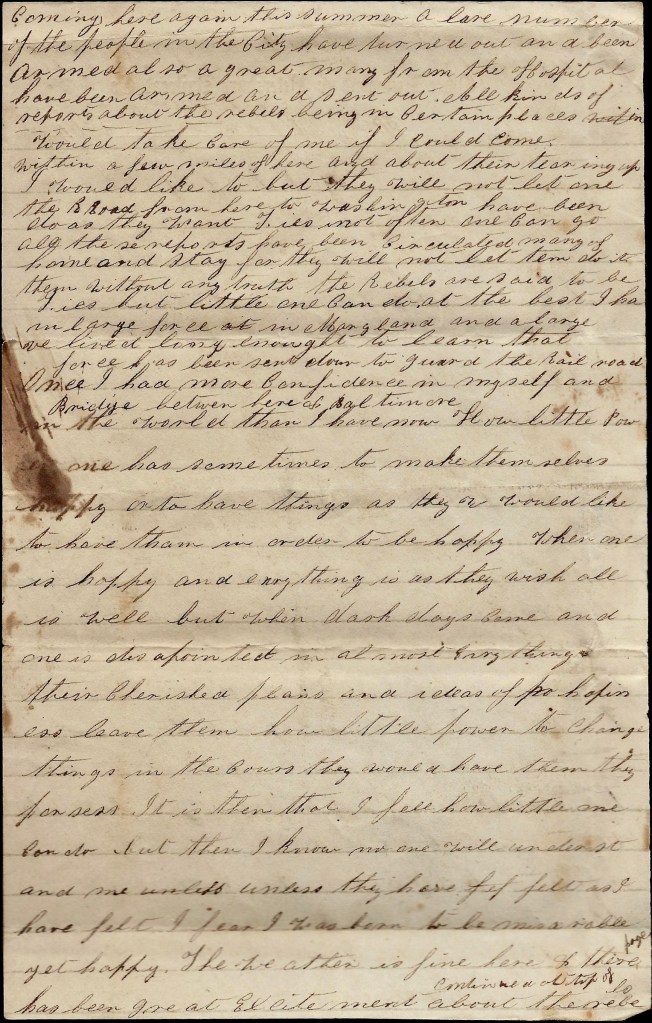 Coming here again this summer a lare number
of the people in the City have turned out and been
Armed also a great many from the Hospital
have been armed and sent out. All kinds of
reports about the rebels being in Certain places
Would take Care of me if I could Come.
within a few miles of here and about their tearing up
I would like to but they will not let one
the R Road from here to Washington have been
do as they want Ties not often one Can go
all these reports have been Circulated many of
home and stay for they will not let tem do it
them without any truth the Rebels are said to be
Ties but little one Can do at the best I ha
in large force at in Maryland and a large
ve lived long enought to learn that
force has been sent down to guard the Rail road
Once I had more Confidence in myself and
Bridge betwen here & Baltimore
in the World than I have now How little Pow
er one has sometimes to make themselves
happy or to have things as they would like
to have tham in order to be happy When one
is happy and enrything is as they wish all
is well but When dark days Come and
one is disapointed in almost Enrything &
their Cherished plans and ideas of
ess leave them how little power to Change
things in the Cours they would have them they
. It is then that I fell how little me
Can do but then I know no one will underst
and me unless unless they have fef felt as I
have felt. I fear I was born to be miserable
page
yet happy. The Weather is fine here & there
Continued at top of
has been great Excitement about the rebe
ls